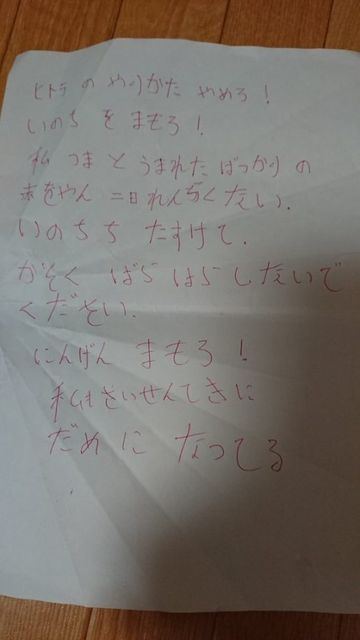 ヒトラの やりかた やめろ!
いのち を まもろ!
私 つま と うまれた ばっかりの
赤をやん 二日 れんらく ない.
いのち ち たすけて.
がそく ばら ばら しないで
ください.
にんげん まもろ!
私も せいせんてきに
だめに なってる